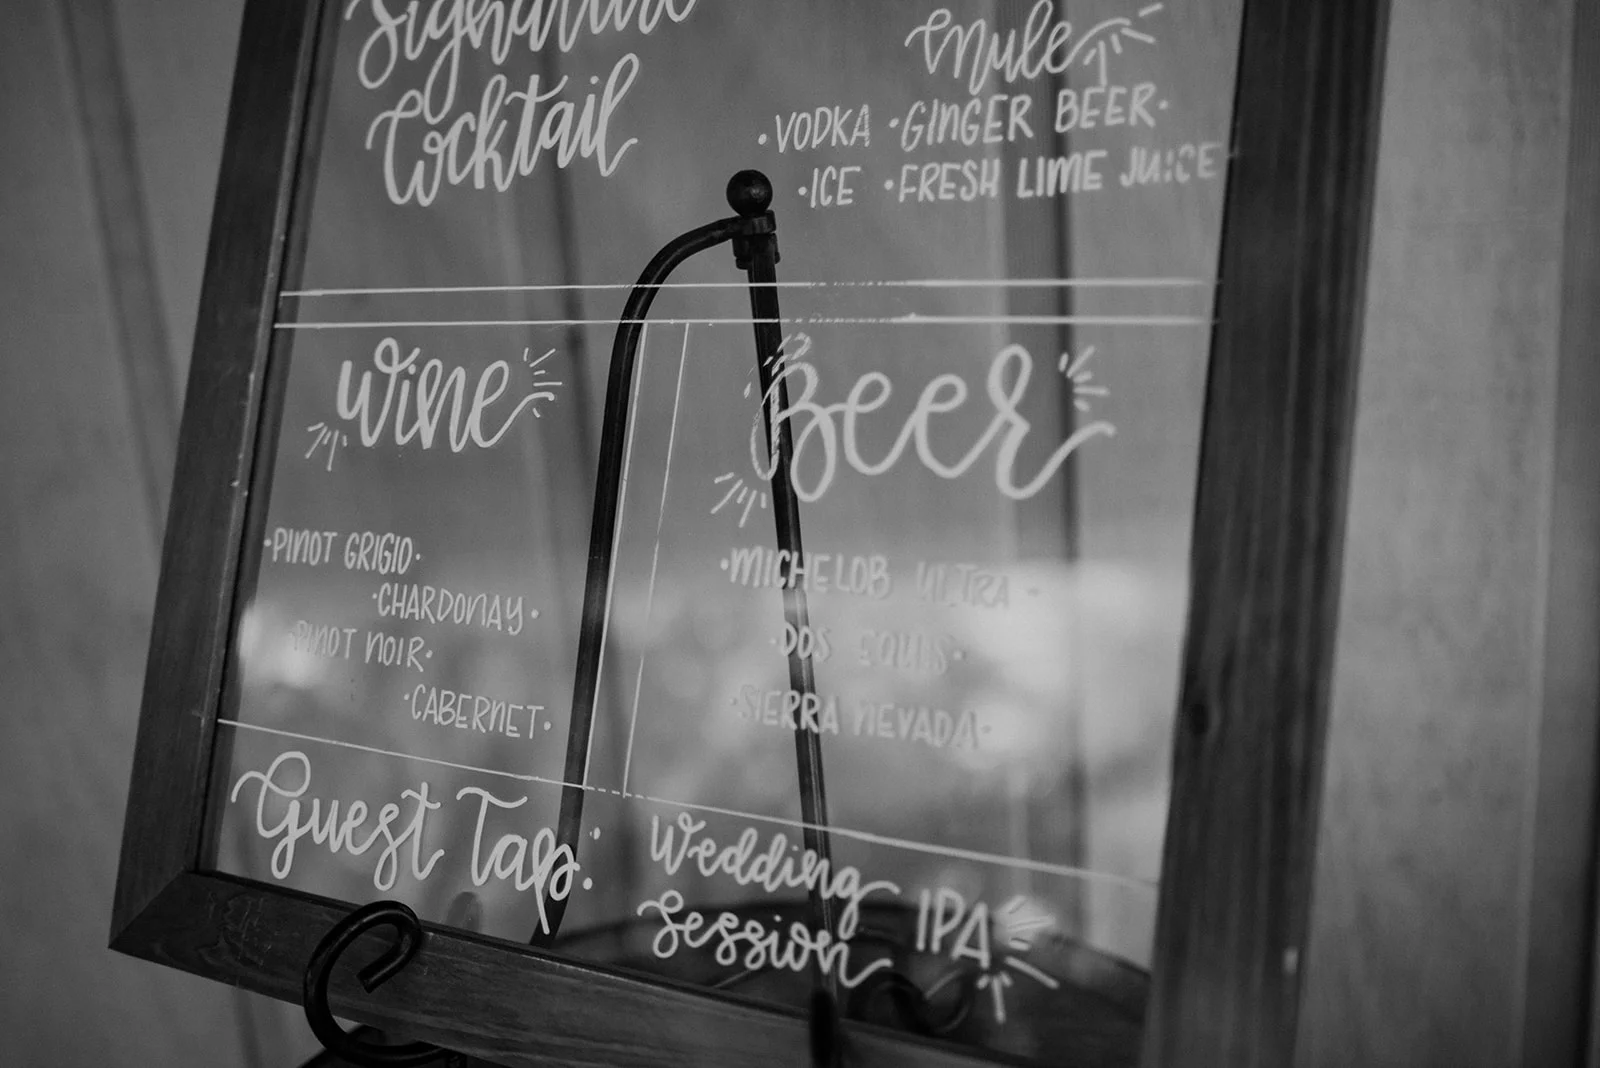 Signature
Cocktail
Mule
·VODKA ·GINGER BEER·
·ICE ·FRESH LIME JUICE
Wine
·PINOT GRIGIO·
·CHARDONAY·
·PINOT NOIR·
·CABERNET·
Beer
·MICHELOB ULTRA·
·DOS EQUIS·
·SIERRA NEVADA·
Guest Tap:
Wedding
Session
IPA